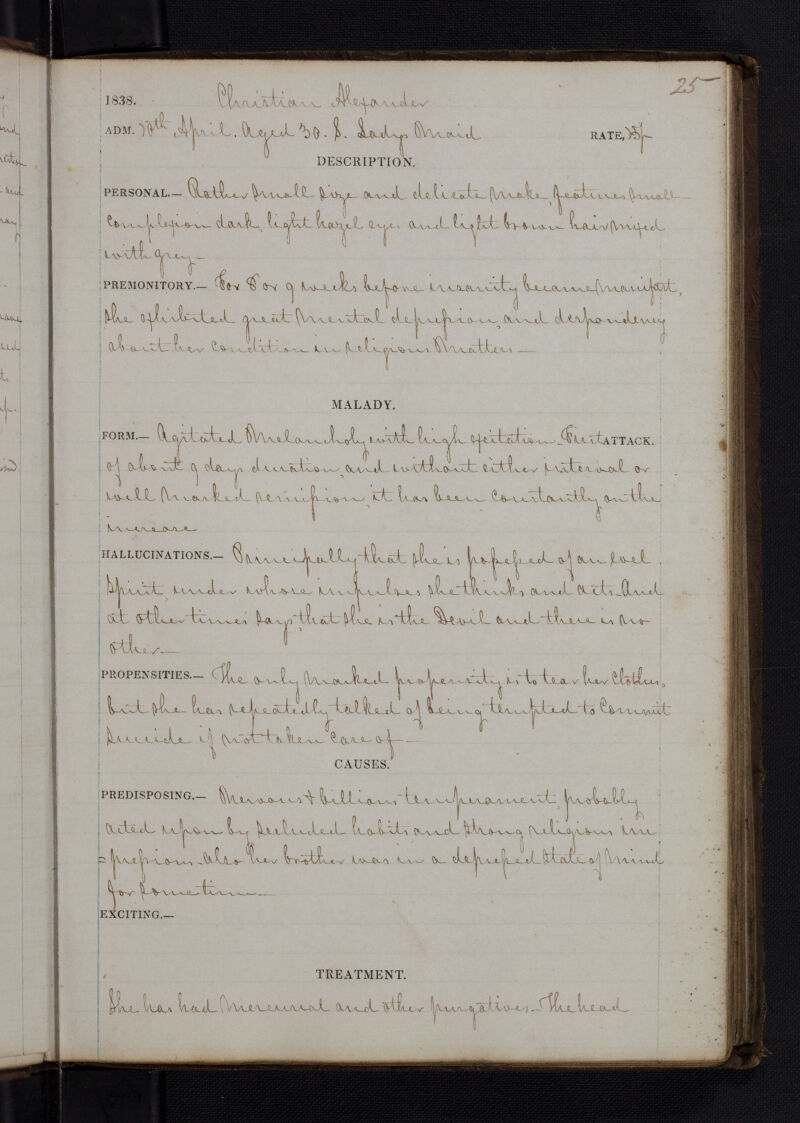 25
1838. Christian Alexander
ADM. April. Aged 30. S. Ladys Maid RATE,
DESCRIPTION.
PERSONAL.— Rather small size and delicate make, features small
Complexion dark, light hazel eyes and light brown hair mixed
with grey—
PREMONITORY.— For 8 or 9 weeks before insanity became manifest,
she exhibited great mental depression, and despondency
about her condition in religious matters—
MALADY.
FORM.— Agitated Melancholy with high excitation. First ATTACK.
of about 9 days duration, and without either interval or
well marked remission, it has been constantly on the
increase
HALLUCINATIONS.— Principally that she is possessed of an evil
spirit, under whose impulses she thinks and acts. And
at other times says that she is the Devil and there is no
other—
PROPENSITIES.— The only marked propensity is to tear her clothes,
but she has repeatedly talked of being tempted to commit
suicide if not taken care of—
CAUSES.
PREDISPOSING.— Nervous & billious temperament, probably
acted upon by secluded habits and strong religious im
=pressions. Also her brother was in a depressed state of mind
for some time
EXCITING.—
TREATMENT.
She has had mercurial and other purgatives. The head